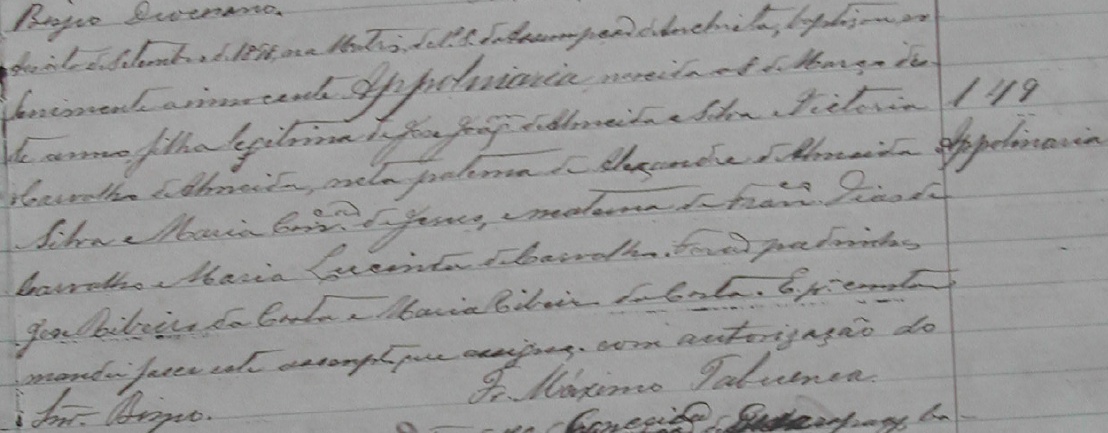 Bispo Diocesano.
de Setembro de 18 na Matriz de N. S. da Assumpção de Anchieta, baptisou so
lenimente a innocente Appolniaria nascida a 8 de Março des
te anno, filha legitima de José Joaq. de Almeida e Silva e Victoria
149
Carvalho de Almeida, neta paterna de Alexandre de Almeida
Appolinaria
Silva e Maria da Conc.ção de Jesus, e materna de Fran.co Dias de
Carvalho e Maria Lucinda de Carvalho. Forão padrinhos
José Ribeiro da Costa e Maria Ribeiro da Costa. E p.a constar
mandei fazer este assento que assigno. com autorização do
Snr. Bispo.
Fr. Máximo Tabuenca.
Conceição